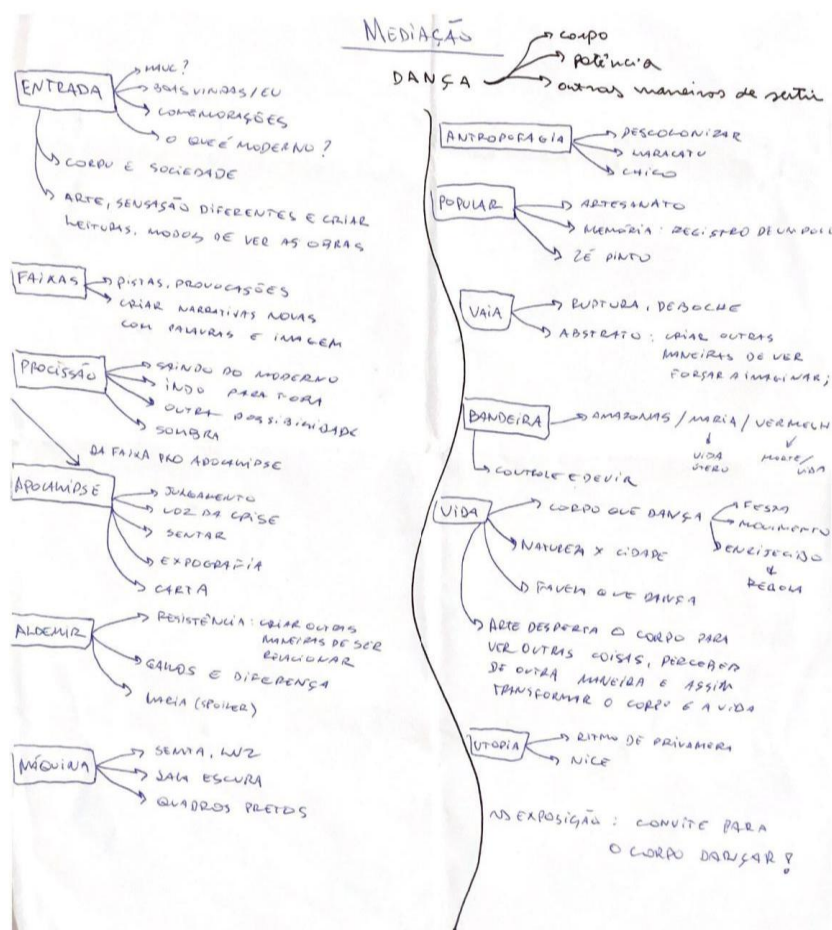 MEDIAÇÃO
DANÇA
corpo
potência
outras maneiras de sentir
ENTRADA
MAUC?
BOAS VINDAS/EU
COMEMORAÇÕES
O QUE É MODERNO?
CORPO E SOCIEDADE
ARTE, SENSAÇÃO DIFERENTES E CRIAR
LEITURAS, MODOS DE VER AS OBRAS
FAIXAS
PISTAS, PROVOCAÇÕES
CRIAR NARRATIVAS NOVAS
COM PALAVRAS E IMAGEM
PROCISSÃO
SAINDO DO MODERNO
INDO PARA FORA
OUTRA POSSIBILIDADE
SOMBRA
DA FAIXA PRO APOCALIPSE
APOCALIPSE
JULGAMENTO
VOZ DA CRISE
SENTAR
EXPOGRAFIA
CARTA
ALDEMIR
RESISTÊNCIA: CRIAR OUTRAS
MANEIRAS DE SER
RELACIONAR
GALOS E DIFERENÇA
MARIA (SPOILER)
MÁQUINA
SENTA, LUZ
SALA ESCURA
QUADROS PRETOS
ANTROPOFAGIA
DESCOLONIZAR
MARACATU
CHICO
POPULAR
ARTESANATO
MEMÓRIA: REGISTRO DE UM POVO
ZÉ PINTO
VAIA
RUPTURA, DEBOCHE
ABSTRATO: CRIAR OUTRAS
MANEIRAS DE VER
FORÇAR A IMAGINAR;
BANDEIRA
AMAZONAS / MARIA / VERMELH
VIDA
MORTE/
VIDA
CONTROLE E DEVIR
VIDA
CORPO QUE DANÇA
FESTA
MOVIMENTO
ENRIJECIDO
REBOLA
NATUREZA X CIDADE
FAVELA QUE DANÇA
ARTE DESPERTA O CORPO PARA
VER OUTRAS COISAS, PERCEBER
DE OUTRA MANEIRA E ASSIM
TRANSFORMAR O CORPO E A VIDA
UTOPIA
RITMO DE PRIVAMERA
NICE
EXPOSIÇÃO: CONVITE PARA
O CORPO DANÇAR!